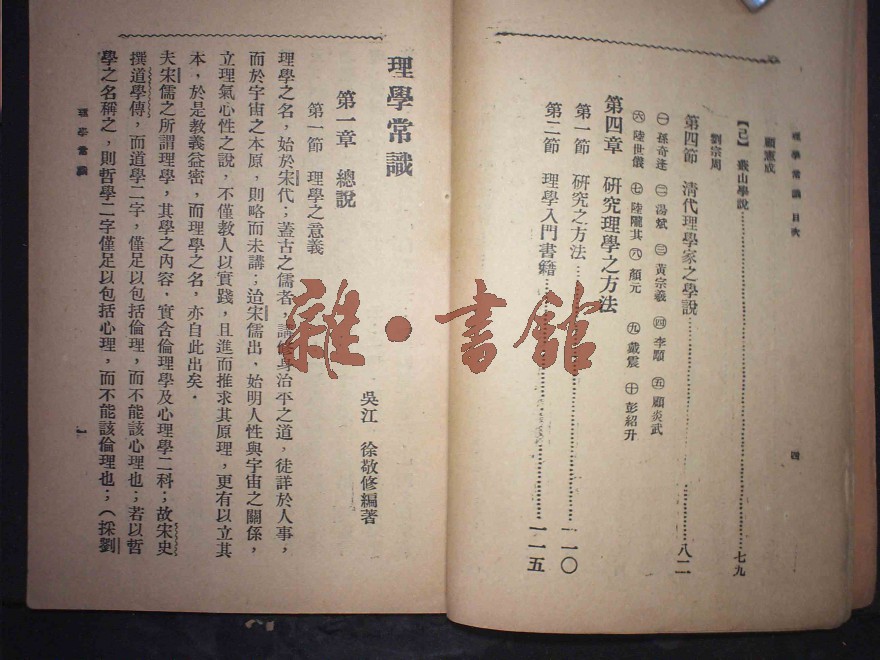 理學常識　目次
四
顧憲成
【己】　蕺山學說……七九
劉宗周
第四節　清代理學家之學說……八二
㊀孫奇逢　㊁湯斌　㊂黃宗羲　㊃李顒　㊄顧炎武
㊅陸世儀　㊆陸隴其　㊇顏元　㊈戴震　㊉彭紹升
第四章　研究理學之方法
第一節　研究之方法……一一〇
第二節　理學入門書籍……一一五
理學常識
吳江　徐敬修編著
第一章　總說
第一節　理學之意義
理學之名，始於宋代；蓋古之儒者，講修身治平之道，徒詳於人事，
而於宇宙之本原，則略而未講；迨宋儒出，始明人性與宇宙之關係，
立理氣心性之說，不僅教人以實踐，且進而推求其原理，更有以立其
本，於是教義益密，而理學之名，亦自此出矣．
夫宋儒之所謂理學，其學之內容，實含倫理學及心理學二科；故宋史
撰道學傳，而道學二字，僅足以包括倫理，而不能該心理也；若以哲
學之名稱之，則哲學二字僅足以包括心理，而不能該倫理也；（採劉
理學常識
一
雜・書館